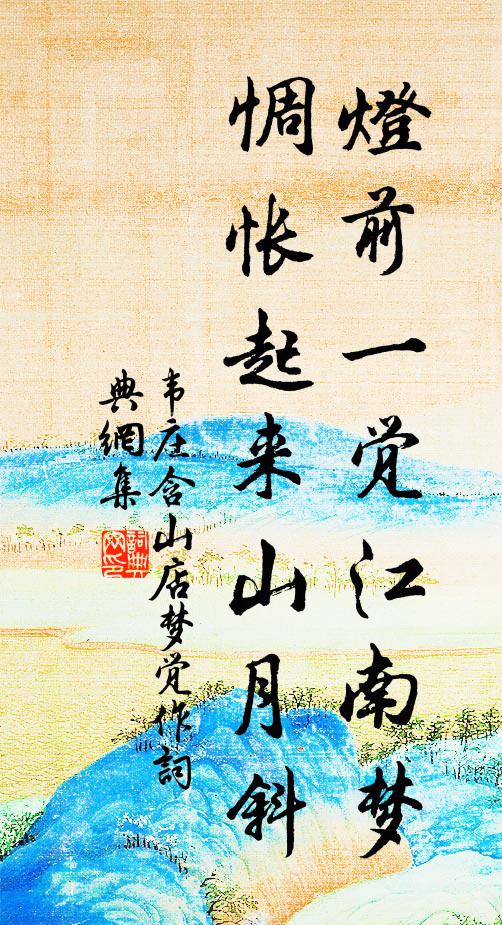 燈前一觉江南梦
惆怅起来山月斜
韦庄含山店梦觉作詞
典網集